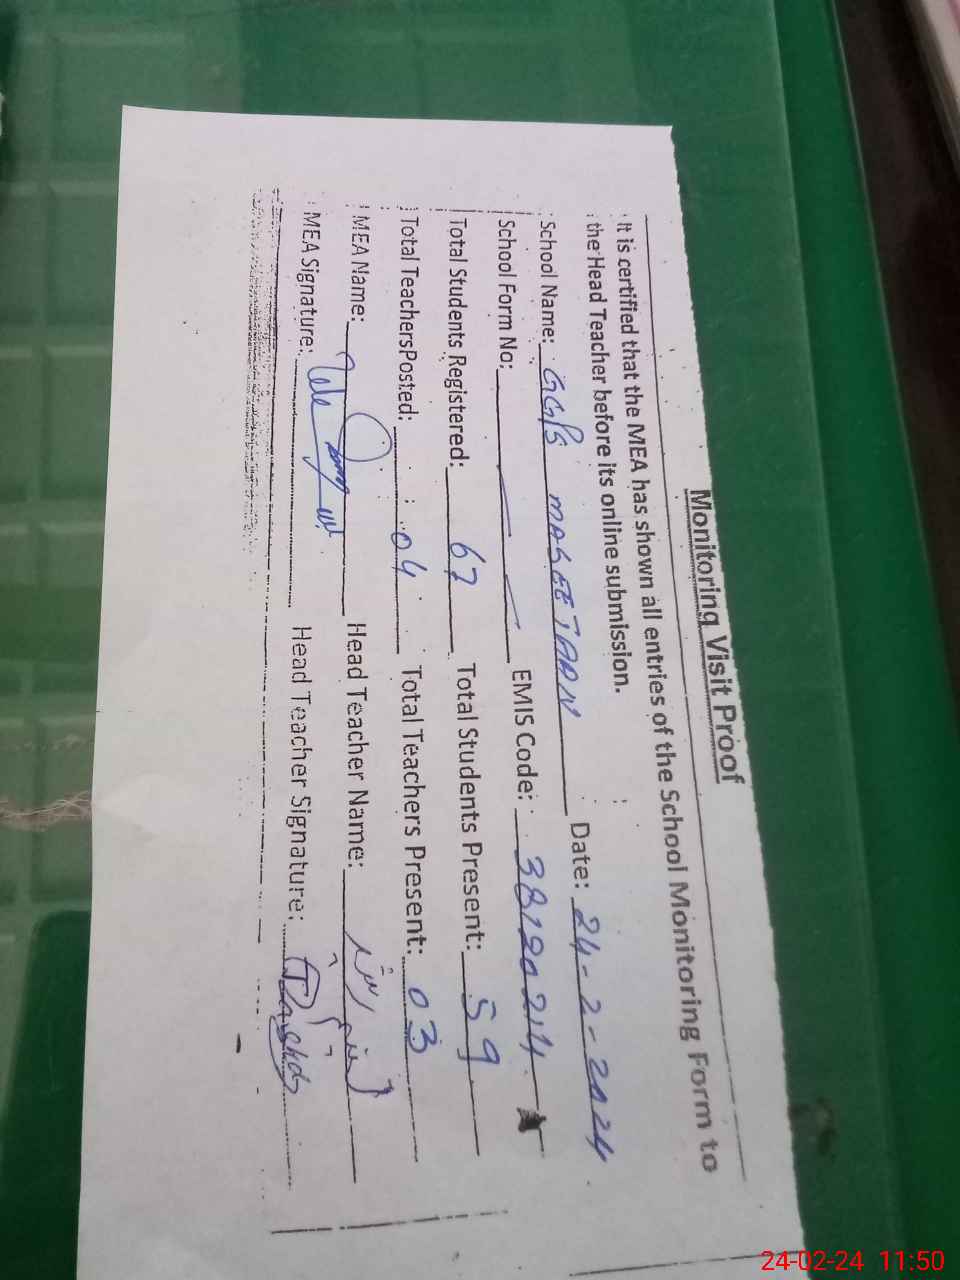 Monitoring Visit Proof
It is certified that the MEA has shown all entries of the School Monitoring Form to
the Head Teacher before its online submission.
School Name: GGPS MASEETAAN Date: 24-2-2024
School Form No: EMIS Code: 38190214
Total Students Registered: 67 Total Students Present: 59
Total TeachersPosted: 04 Total Teachers Present: 03
MEA Name: Head Teacher Name:
MEA Signature: Head Teacher Signature:
24-02-24 11:50